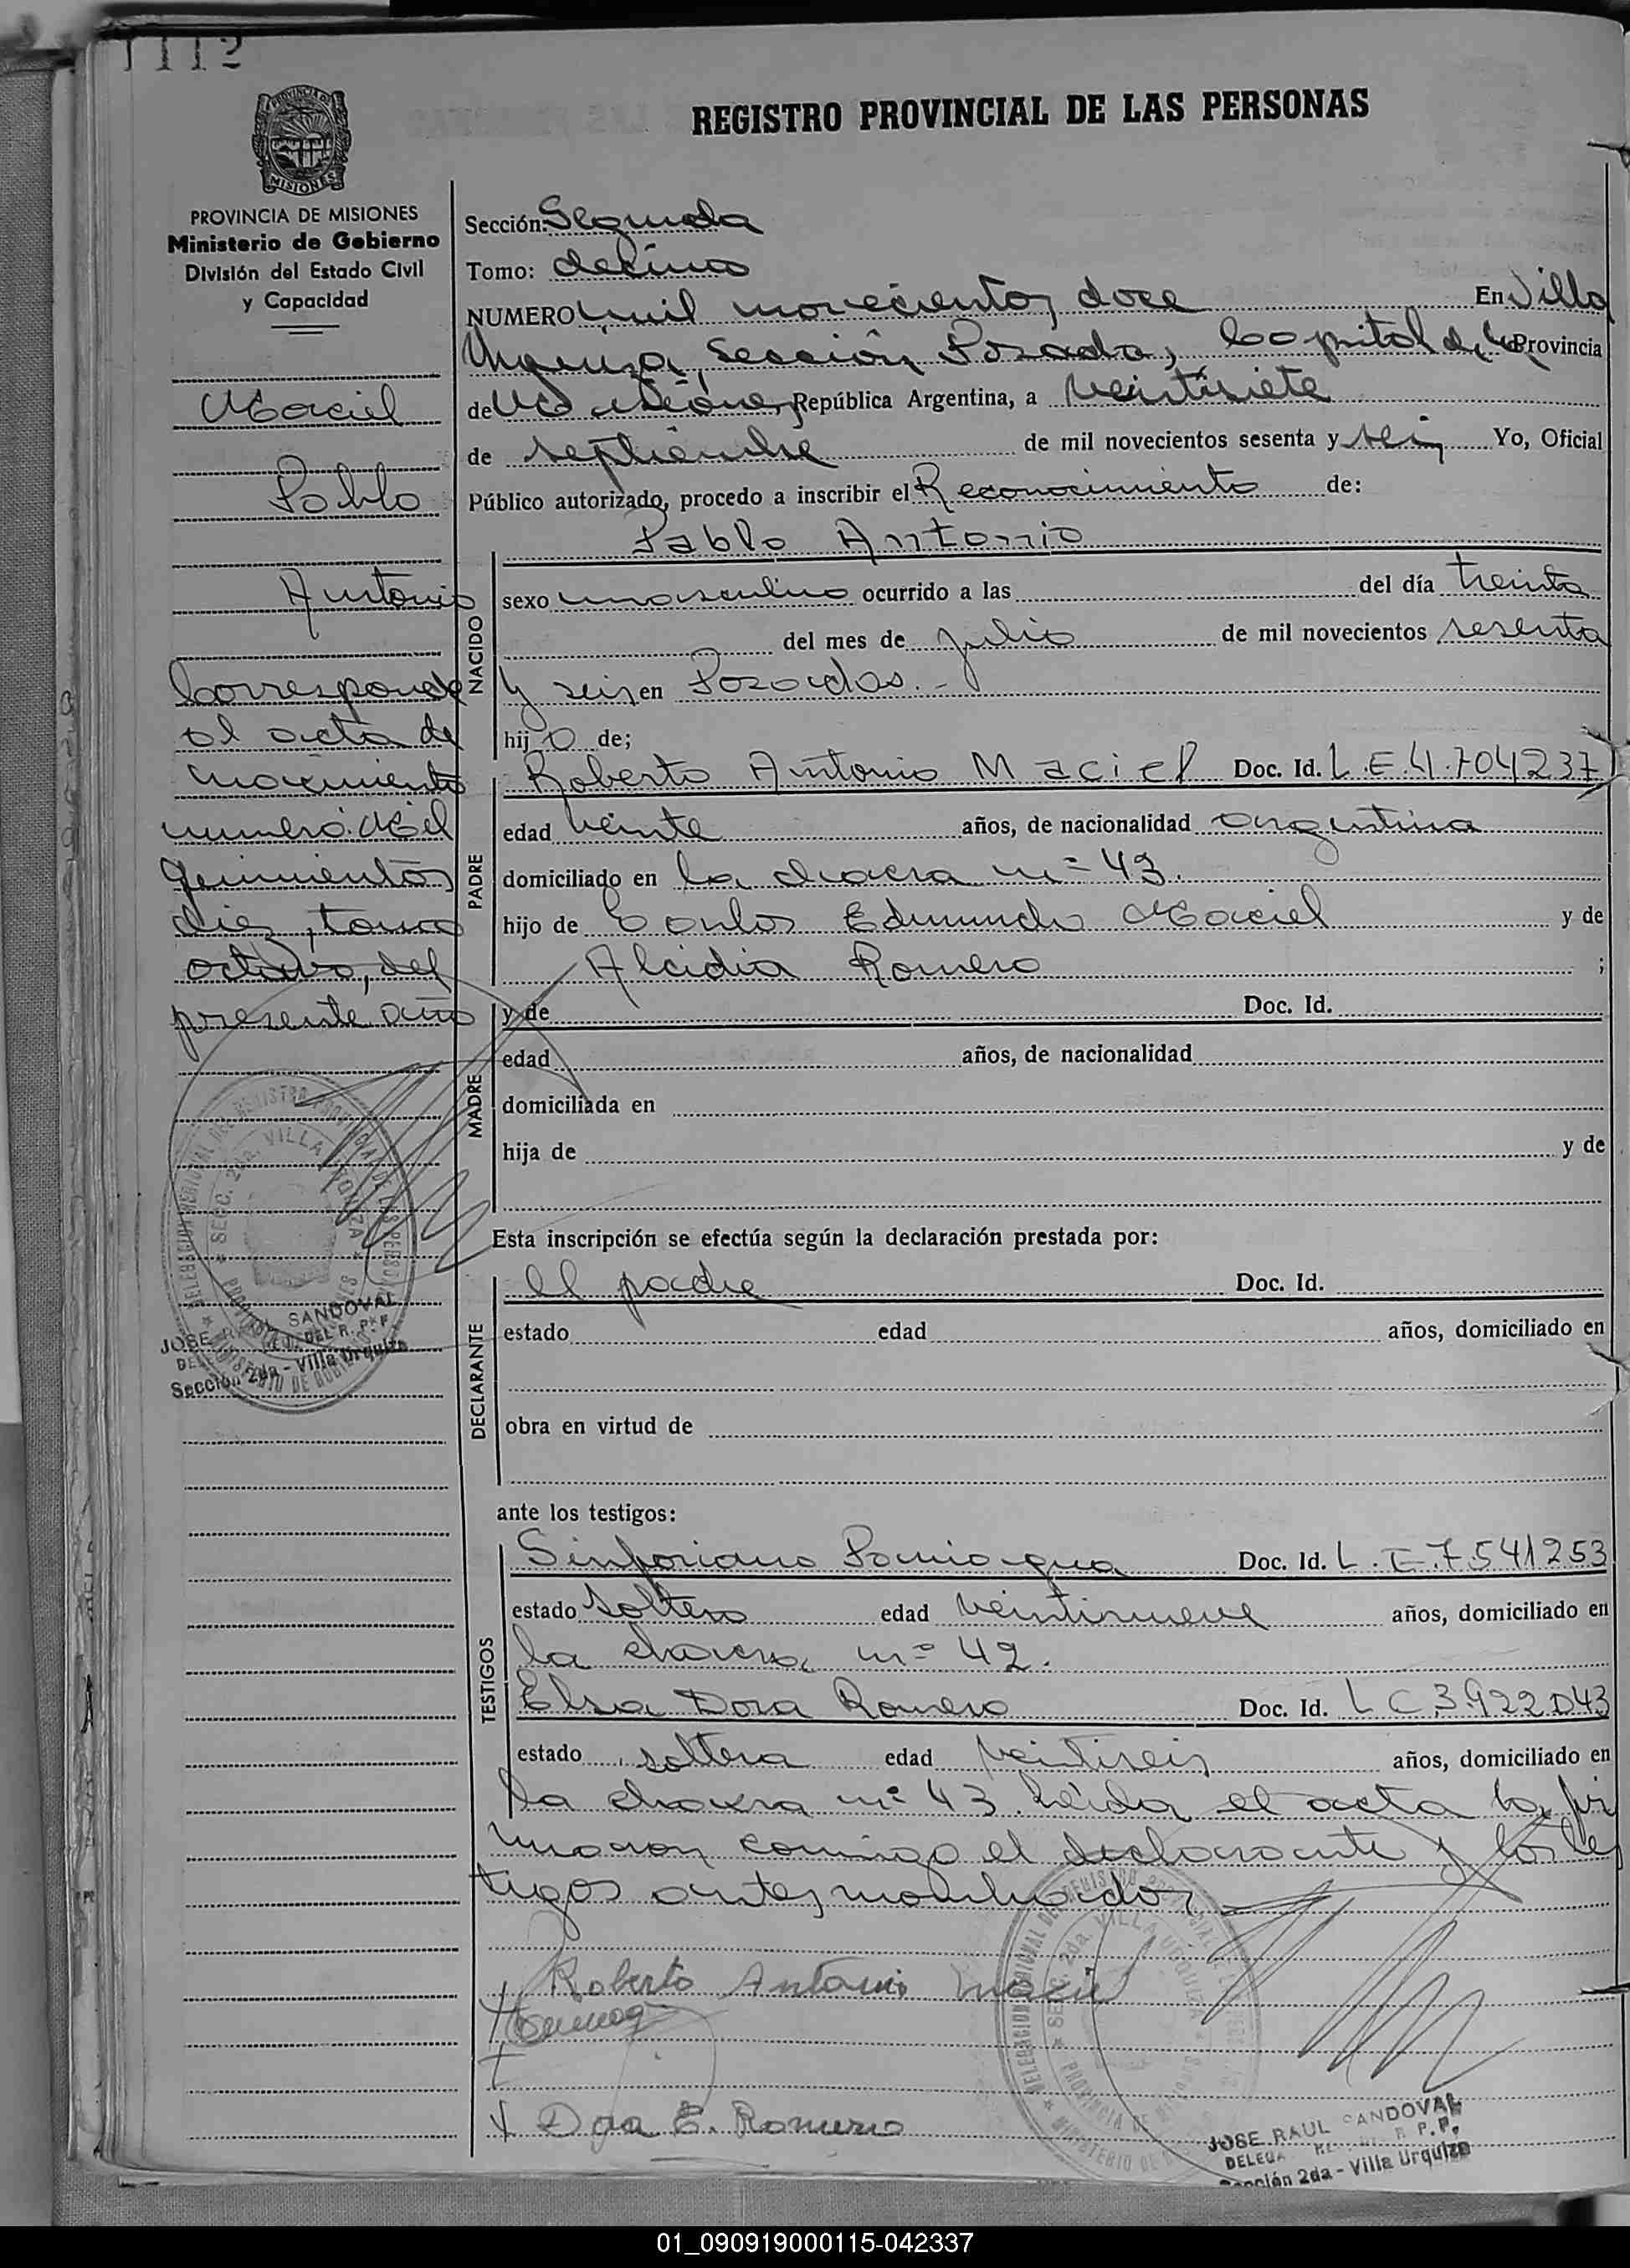 1112
REGISTRO PROVINCIAL DE LAS PERSONAS
PROVINCIA DE MISIONES
MISIONES
PROVINCIA DE MISIONES
Ministerio de Gobierno
División del Estado Civil
y Capacidad
Maciel
Pablo
Antonio
Corresponde
al acta de
nacimiento
numero Mil
quinientos
diez, tomo
octavo, del
presente año
JOSE RAUL SANDOVAL
DEL R. P. P.
Sección 2da - Villa Urquiza
Sección: Segunda
Tomo: decimo
NUMERO mil novecientos doce En Villa
Urquiza, Sección Posadas, Capital de la Provincia
de Misiones, República Argentina, a veintisiete
de septiembre de mil novecientos sesenta y seis Yo, Oficial
Público autorizado, procedo a inscribir el Reconocimiento de:
Pablo Antonio
NACIDO
sexo masculino ocurrido a las del día treinta
del mes de julio de mil novecientos sesenta
y seis en Posadas.-
hij o de;
PADRE
Roberto Antonio Maciel Doc. Id. L.E.4.704237
edad veinte años, de nacionalidad argentina
domiciliado en la chacra nº 43.
hijo de Carlos Edmundo Maciel y de
Alcidia Romero ;
MADRE
y de Doc. Id.
edad años, de nacionalidad
domiciliada en
hija de y de
Esta inscripción se efectúa según la declaración prestada por:
DECLARANTE
el padre Doc. Id.
estado edad años, domiciliado en
obra en virtud de
ante los testigos:
TESTIGOS
Sinforiano Doc. Id. L.E.7.541253
estado soltero edad veintinueve años, domiciliado en
la chacra nº 42.
Elsa Dora Romero Doc. Id. L C 3.922.043
estado soltera edad veintiseis años, domiciliado en
la chacra nº 43. Leida el acta la fir
maron conmigo el declarante y los tes
tigos antes nombrados
Roberto Antonio Maciel
E. Romero
JOSE RAUL SANDOVAL
R. P. P.
Sección 2da - Villa Urquiza
01_090919000115-042337